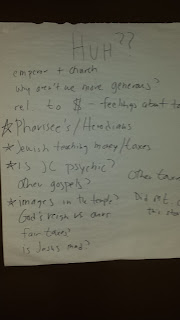 HUH??
emperor + church
why aren't we more generous?
rel. to $ - feelings about
* Pharisee's / Herodians
* Jewish teaching money/taxes
* is JC psychic?
Other taxes
other gospels?
* images in the temple?
Did
God's reign vs ours
this
fair taxes?
is Jesus mad?